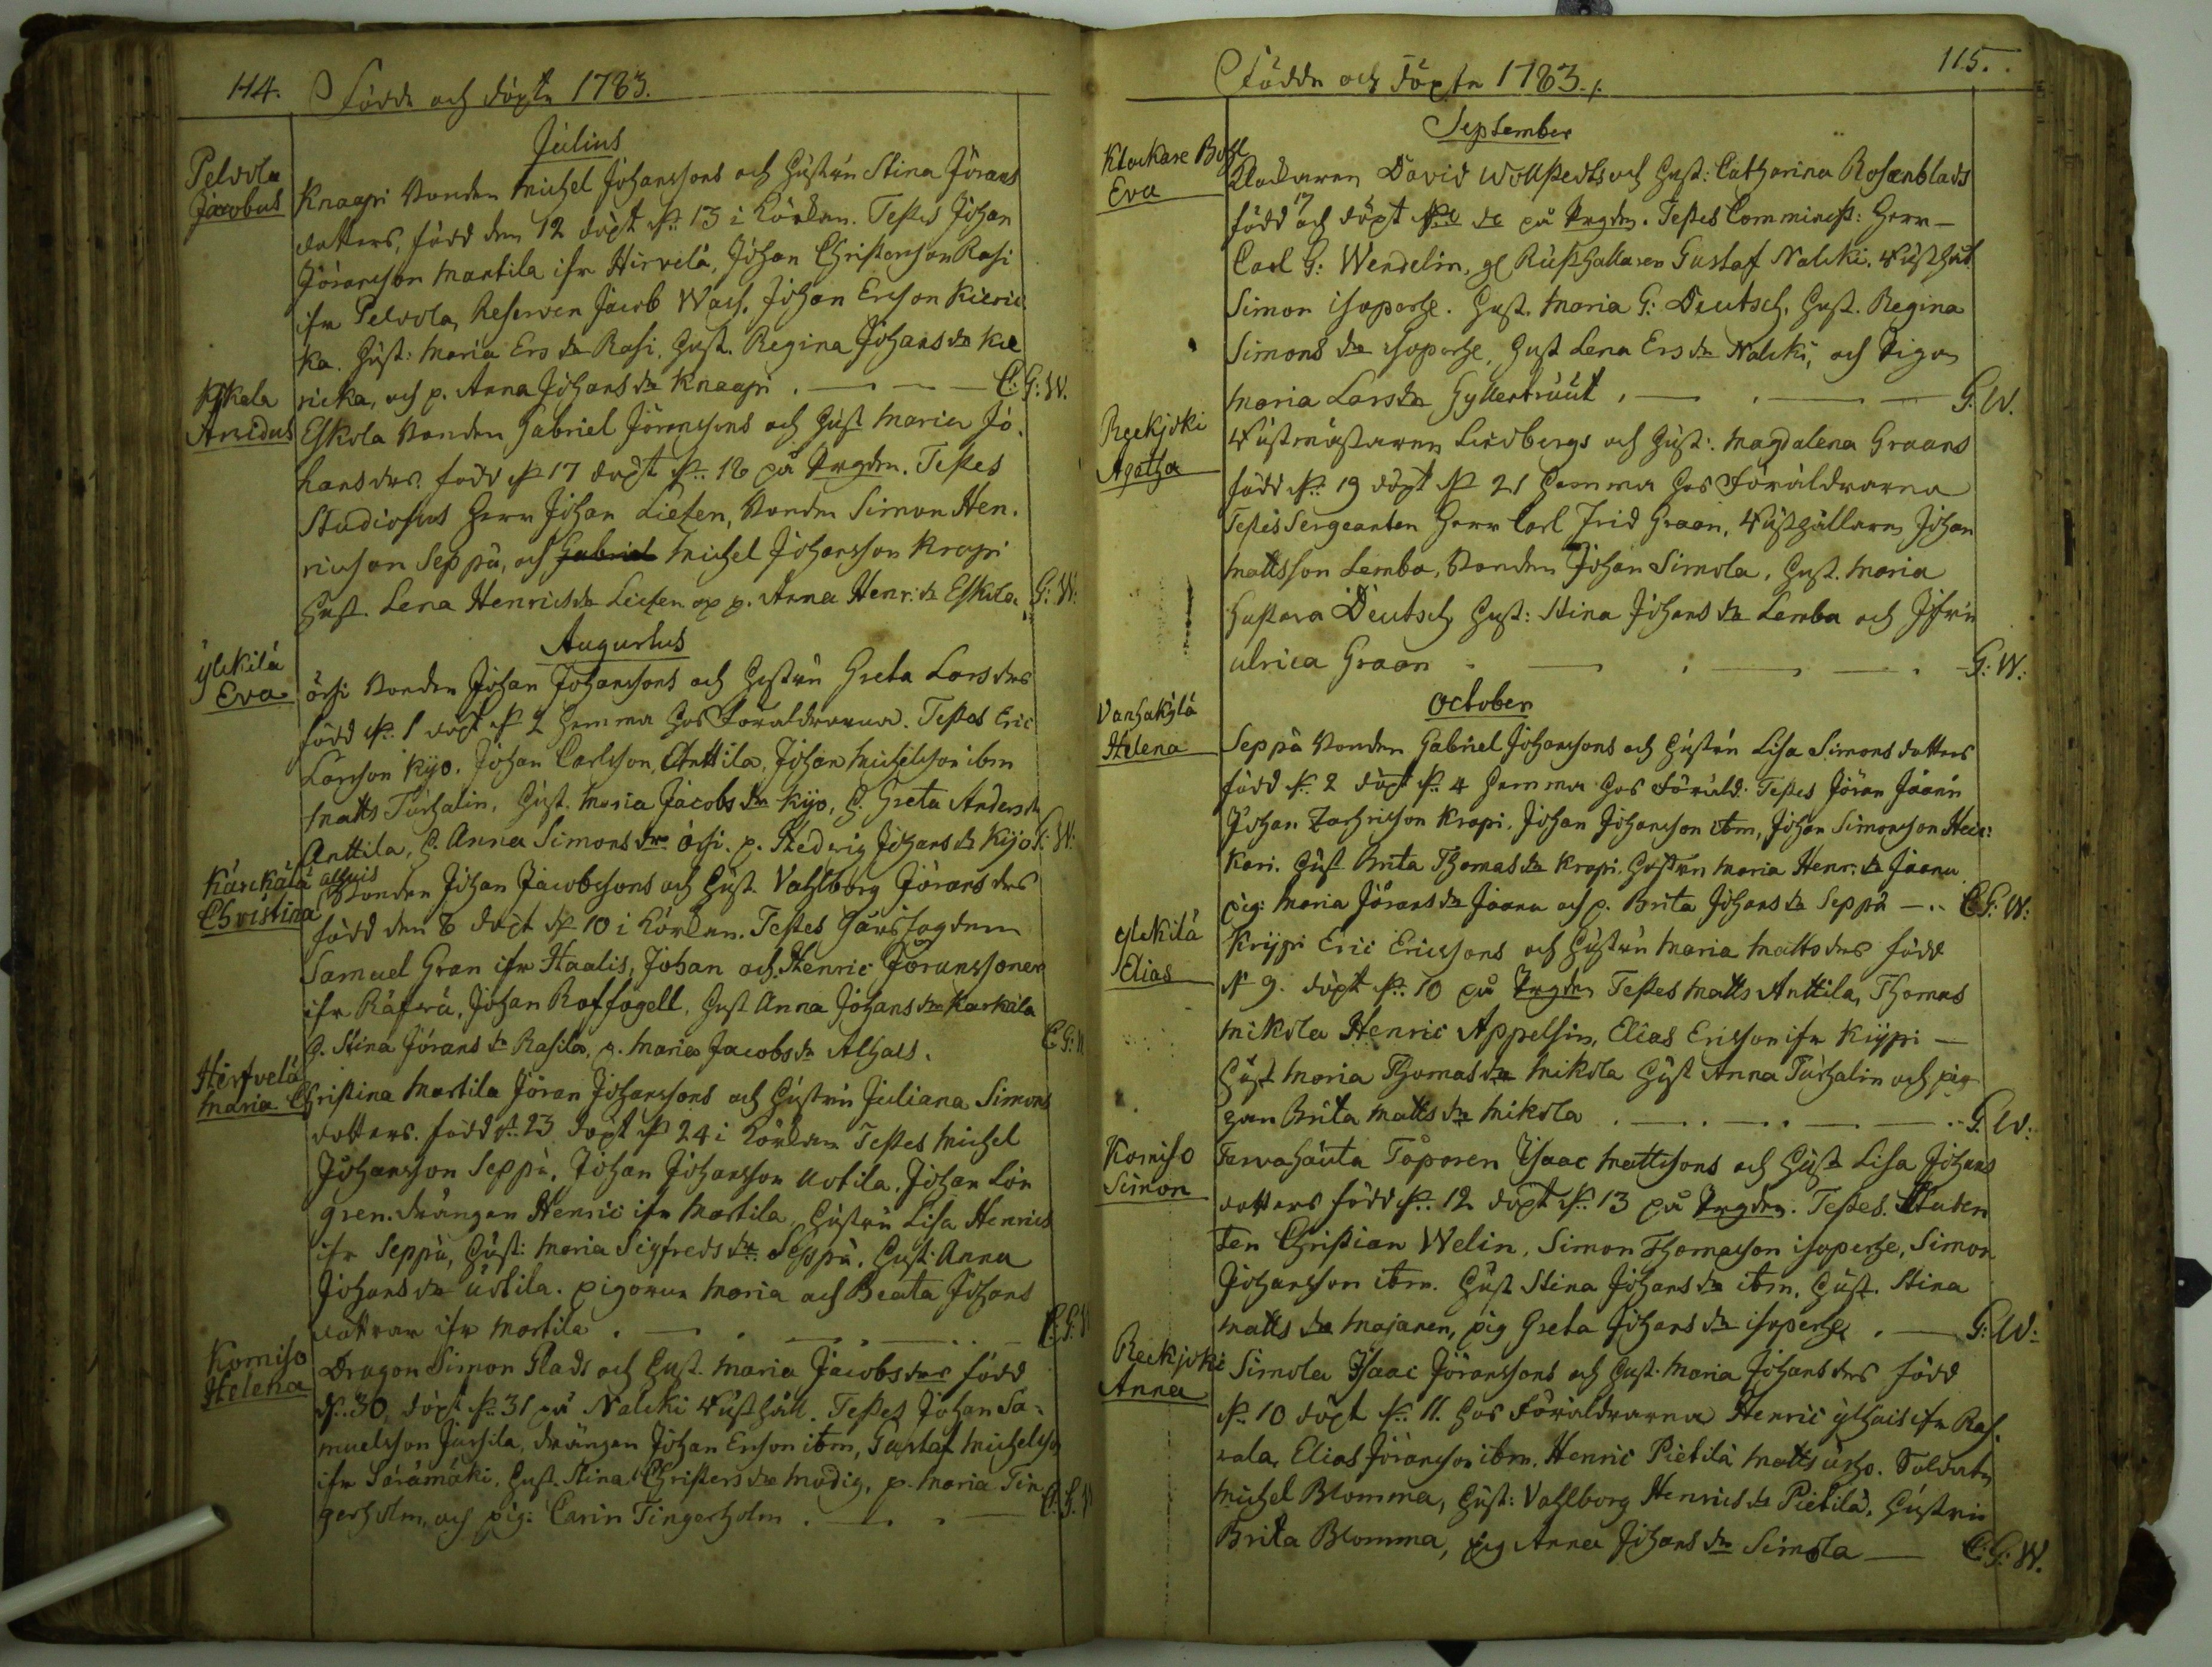 114. Födde och döpte 1783.
Julius
Pelvola
Jacobus
Knaapi Bonden Michel Johanssons och Hustrun Stina Jörans
dotters, född den 12 döpt d. 13 i Körkan. Testes Johan
Jöransson Martila ifr Hirvelä, Johan Christersson Rasi
ifr Pelvola, Reserven Jacob Wass, Johan Ersson Kieric
ka. Hust: Maria Ers dr Rasi, Hust. Regina Johans dr Kie
ricka, och p. Anna Johans dr Knaapi. C: G: W.
Eskola
Bonden Gabriel Jöranssons och Hust Maria Jo
hans drs. född d. 17 döpt d. 18 på Prgdn. Testes
Studiosus Herr Johan Lietzen, Bonden Simon Hen.
ricsson Seppä, och Gabriel Michel Johansson Krapi
Hust. Lena Henricsdr Lietzen och p. Anna Henr: dr Eskola. G: W:
Augustus
Ylckilä
Eva
Örsi Bonden Johan Johanssons och Hustrun Greta Lars drs
född d. 1 döpt d. 2 hemma hos Föräldrarna. Testes Eric
Larsson Kijo, Johan Carlsson Anttila, Johan Michelsson ibm
Matts Turhalin, Hust. Maria Jacobs dr Kijo, H. Greta Anders dr
Anttila, H. Anna Simons dr Örsi. p. Hedvig Johans dr Kijo G: W:
Kärckälä
Christina
alhais
Bonden Johan Jacobssons och Hust. Vahlborg Jörans drs
född den 8 döpt d. 10 i Körkan. Testes
Samuel Gran ifr Haalis, Johan och Henric Jöranssoner
ifr Räfwä, Johan Roffogell, Hust Anna Johans dr Karkila
H. Stina Jörans dr Rasila, p. Maria Jacobs dr Alhais. C: G: W
Hirfvelä
Maria Christina
Martila Jöran Johanssons och Hustrun Juliana Simons
dotters. född d. 23 döpt d. 24 i Körkan Testes Michel
Johansson Seppä, Johan Johansson Uotila, Johan Lön
gren. Drängen Henric ifr Martila, Hustrun Lisa Henrics
ifr Seppä, Hust: Maria Sigfreds dr Seppä, Hust: Anna
Johans dr Uotila. pigorna Maria och Beata Johans
döttrar ifr Martila. C: G: W
Korniso
Helena
Dragon Simon Glads och Hust. Maria Jacobs drs född
d. 30, döpt d. 31 på Nalcki Rusthåll. Testes Johan Sa=
muelsson Jussila, drängen Johan Ersson ibm, Gustaf Michelsson
ifr Särämäki, Hust. Stina Christers dr Modig, p. Maria Tin
gerholm, och pig: Carin Tingerholm. C: G: W
Födde och Döpte 1783. 115.
September
Klockare Bohl
Eva
Klockaren David Wollstedts och Hust: Catharina Rosenblads
född 17 och döpt på Prgdn. Testes Comminist: Herr
Carl G: Wendelin, Rusthållaren Gustaf Nalcki, Rusthål.
Simon isoperhe. Hust. Maria G: Deutsch, Hust. Regina
Simons dr isoperhe, Hust Lena Ers dr Nalcki, och Pigan
Maria Lars dr Gyllenkrut. G: W.
Reckjoki
Agatha
Rustmästaren Lindbergs och Hust: Magdalena Graans
född d. 19 döpt d 21 hemma hos Föräldrarna
Testes Sergeanten Herr Carl Frid Graan, Rusthållaren Johan
Mattsson Lemba, Bonden Johan Simola, Hust. Maria
Gustava Deutsch, Hust: Stina Johans dr Lemba och Jfrn
Ulrica Graan G: W:
October
Vanhakylä
Helena
Seppä Bonden Gabriel Johanssons och Hustrun Lisa Simons dotters
född d. 2 döpt d. 4 hemma hos Föräld: Testes Jöran Jaanu
Johan Zachrisson Krapi, Johan Johansson ibm, Johan Simonsson Heic:
kari. Hust Brita Thomas dr Krapi, Hustrun Maria Henr: dr Jaanu
pig: Maria Jörans dr Jaanu och p. Brita Johans dr Seppä C G: W:
Ylckilä
Elias
Krijpi Eric Ericssons och Hustrun Maria Matts drs född
d 9. döpt d. 10 på Prgdn Testes Matts Anttila, Thomas
Mikola Henric Appelsin, Elias Ericsson ifr Kiypi
Hust Maria Thomas dr Mikola Hust Anna Turhalin och pig
gan Brita Matts dr Mikola G: W:
Korniso
Simon
Tervahauta Torparen Isaac Mattssons och Hust Lisa Johans
dotters född d. 12 döpt d. 13 på Prgdn. Testes. Studen
ten Christian Welin, Simon Thomasson isoperhe, Simon
Johansson ibm. Hust Stina Johans dr ibm, Hust. Stina
Matts dr Majanen, pig Greta Johans dr isoperhe. G: W:
Reckjoki
Anna
Simola Isaac Jöranssons och Hust. Maria Johans drs född
d. 10 döpt d. 11. hos Föräldrarna Henric ylhais ifr Ras
vala, Elias Jöransson ibm. Henric Pietilä Matts Soldaten
Michel Blomma, Hust: Vahlborg Henrics dr Pietilä, Hustrun
Brita Blomma, pig Anna Johans dr Simola C: G: W.